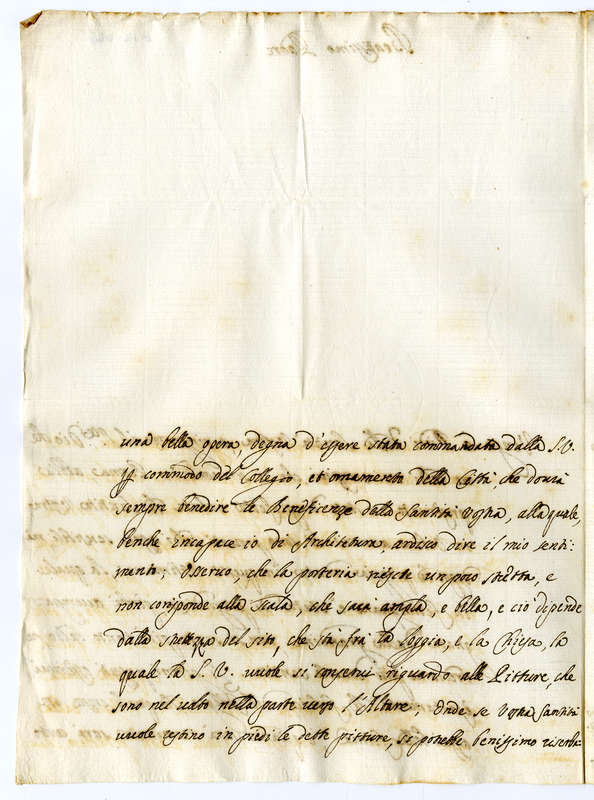 una bella opera, degna d'essere stata commandata dalla S.V.
p commodo del Collegio, et ornamento della Città, che dourà
sempre benedire le Beneficenze della Santità Vostra, alla quale,
benche incapace io di Architettura, ardisco dire il mio senti:
mento; Osseruo, che la porteria riesce un poco stretta, e
non corrisponde alla Scala, che sarà ampla, e bella, e ciò dipende
dalla strettezza del sito, che stà frà la loggia, e la Chiesa, la
quale la S. V. uuole si conserui riguardo alle Pitture, che
sono nel uolto nella parte uerso l'Altare; Onde se Vostra Santità
uuole restino in piedi le dette pitture, si potrebbe benissimo riserba-